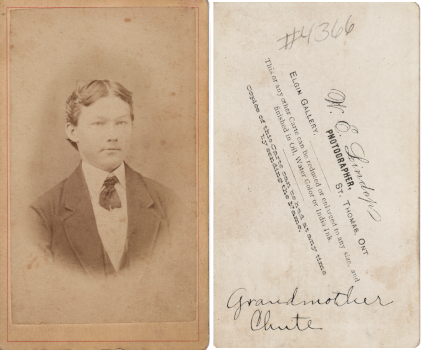 #4366
W. E. Lindop
PHOTOGRAPHER,
ELGIN GALLERY, ST. THOMAS, ONT
This or any other Carte can be reduced or enlarged to any size, and
finished in Oil, Water Color or India Ink.
Copies of this Carte can be had at any time
by sending the Name.
Grandmother
Chute